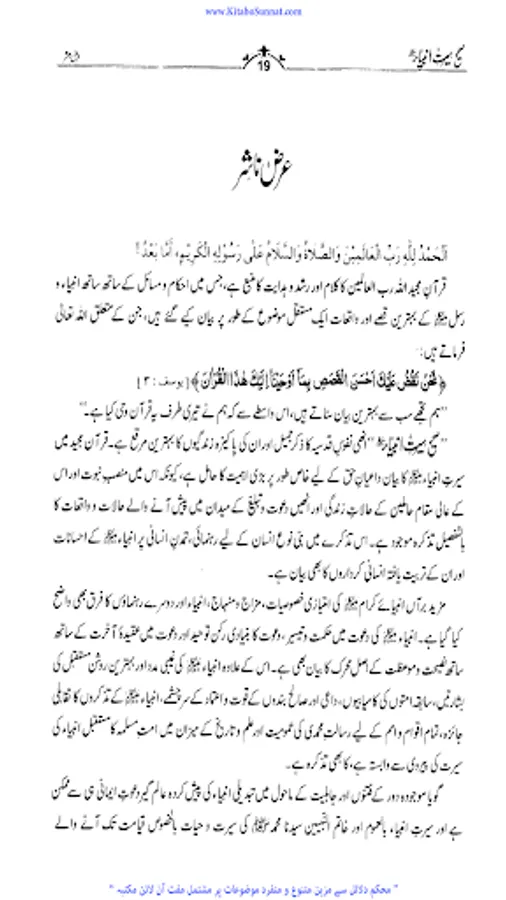 www.KitaboSunnat.com
صحیح سیرت انبیاء
19
عرض ناشر
اَلْحَمْدُ لِلّٰهِ رَبِّ الْعَالَمِيْنَ وَالصَّلَاةُ وَالسَّلَامُ عَلٰى رَسُوْلِهِ الْكَرِيْمِ، اَمَّا بَعْدُ!
قرآن مجید اللہ رب العالمین کا کلام اور رشد و ہدایت کا منبع ہے، جس میں احکام و مسائل کے ساتھ ساتھ انبیاء و
رسل ﷺ کے بہترین قصے اور واقعات ایک مستقل موضوع کے طور پر بیان کیے گئے ہیں، جن کے متعلق اللہ تعالیٰ
فرماتے ہیں:
﴿نَحْنُ نَقُصُّ عَلَيْكَ اَحْسَنَ الْقَصَصِ بِمَآ اَوْحَيْنَآ اِلَيْكَ هٰذَا الْقُرْاٰنَ﴾ [یوسف : ۳]
”ہم تجھے سب سے بہترین بیان سناتے ہیں، اس واسطے سے کہ ہم نے تیری طرف یہ قرآن وحی کیا ہے۔“
”صحیح سیرت انبیاء“ انھی نفوس قدسیہ کا ذکر جمیل اور ان کی پاکیزہ زندگیوں کا بہترین مرقع ہے۔ قرآن مجید میں
سیرت انبیاء ﷺ کا بیان داعیان حق کے لیے خاص طور پر بڑی اہمیت کا حامل ہے، کیونکہ اس میں منصب نبوت اور اس
کے عالی مقام حاملین کے حالات زندگی اور انھیں دعوت و تبلیغ کے میدان میں پیش آنے والے حالات و واقعات کا
بالتفصیل تذکرہ موجود ہے۔ اس تذکرے میں بنی نوع انسان کے لیے رہنمائی، تمدن انسانی پر انبیاء ﷺ کے احسانات
اور ان کے تربیت یافتہ انسانی کرداروں کا بھی بیان ہے۔
مزید برآں انبیائے کرام ﷺ کی امتیازی خصوصیات، مزاج و منہاج، انبیاء اور دوسرے رہنماؤں کا فرق بھی واضح
کیا گیا ہے۔ انبیاء ﷺ کی دعوت میں حکمت و تیسیر، دعوت کا بنیادی رکن توحید اور دعوت میں عقیدۂ آخرت کے ساتھ
ساتھ نصیحت و موعظت کے اصل محرک کا بیان بھی ہے۔ اس کے علاوہ انبیاء ﷺ کی غیبی مدد اور بہترین روشن مستقبل کی
بشارتیں، سابقہ امتوں کی کامیابیوں، داعی اور صالح بندوں کے قوت و اعتماد کے سرچشمے، انبیاء ﷺ کے تذکروں کا تقابلی
جائزہ، تمام اقوام و امم کے لیے رسالت محمدی کی عمومیت اور علم و تاریخ کے میزان میں امت مسلمہ کا مستقبل انبیاء کی
سیرت کی پیروی سے وابستہ ہے، کا بھی تذکرہ ہے۔
گویا موجودہ دور کے فتنوں اور جاہلیت کے ماحول میں تبدیلی انبیاء کی پیش کردہ عالم گیر دعوت ایمانی ہی سے ممکن
ہے اور سیرت انبیاء بالعموم اور خاتم النبیین سیدنا محمد ﷺ کی سیرت و حیات بالخصوص قیامت تک آنے والے
" محکم دلائل سے مزین متنوع و منفرد موضوعات پر مشتمل مفت آن لائن مکتبہ "